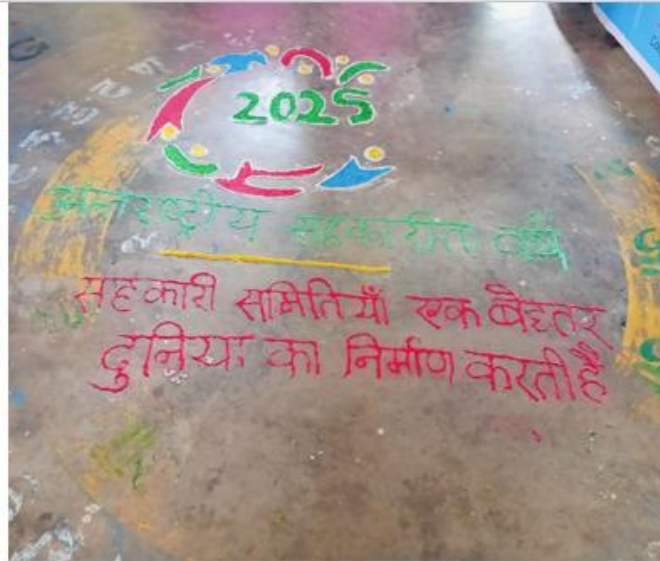 2025
अन्तराष्ट्रीय सहकारीता वर्ष
सहकारी समितियाँ एक बेहतर
दुनिया का निर्माण करती है